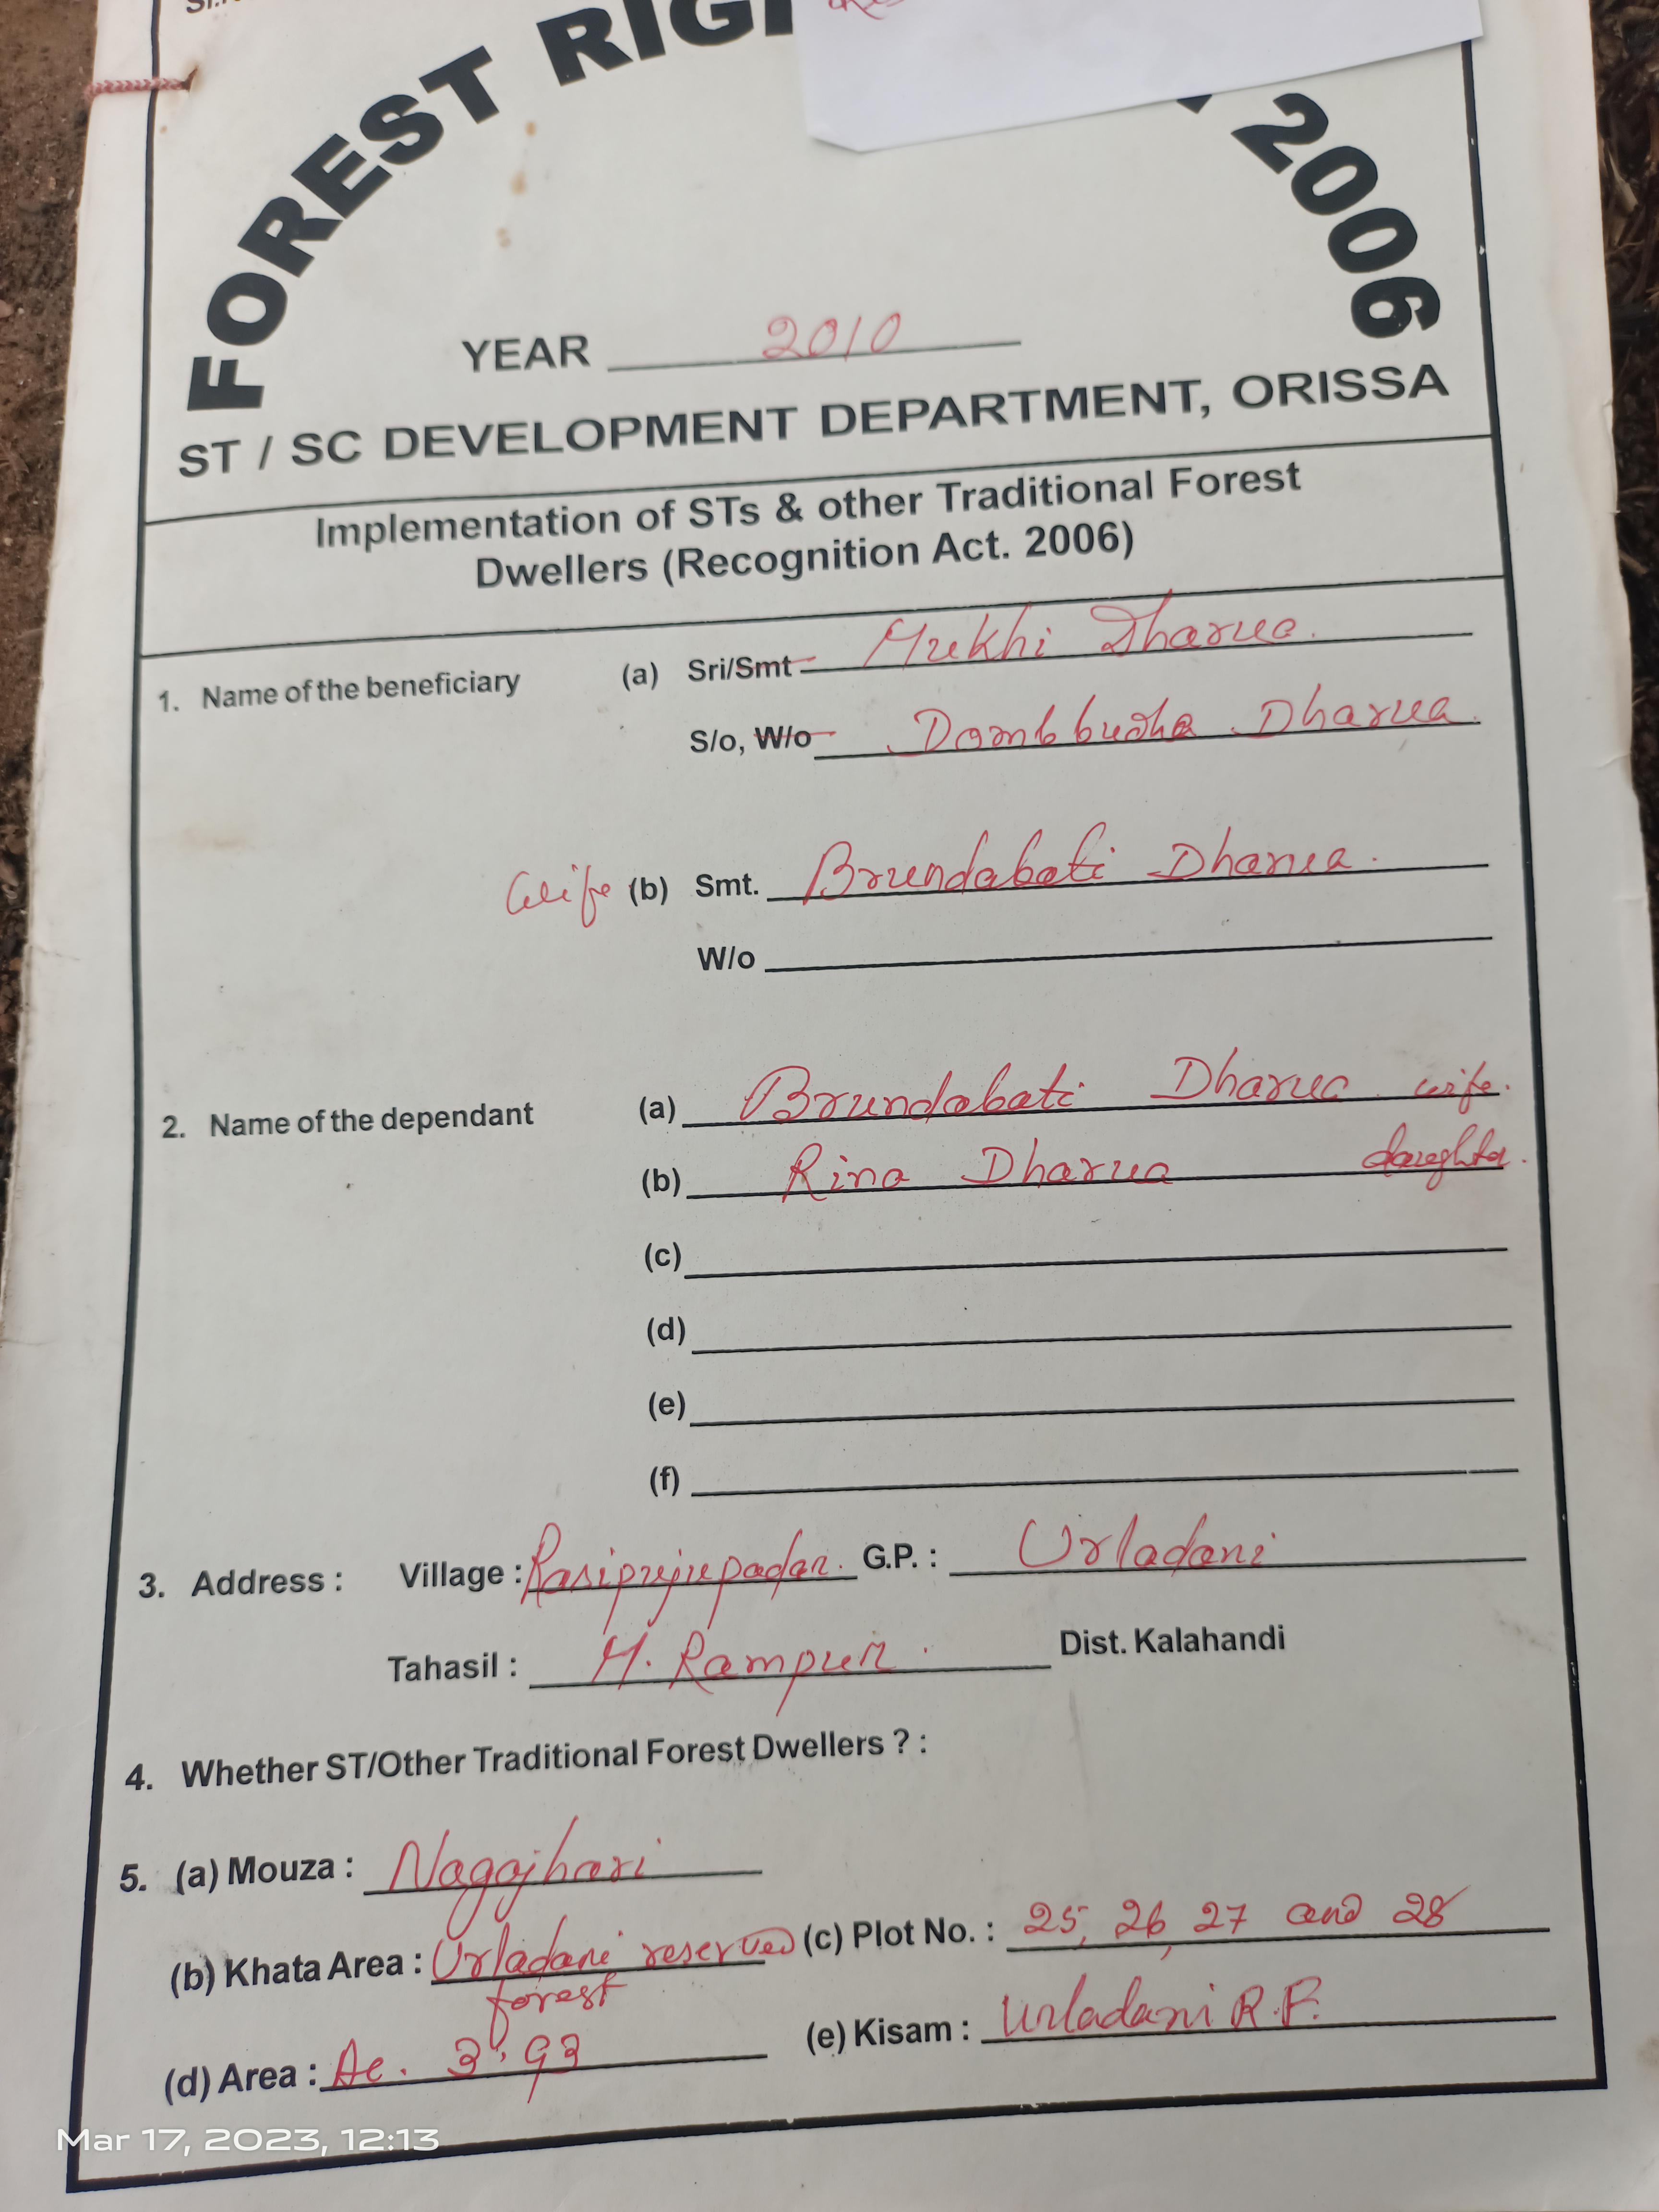 FOREST RIG
2006
YEAR 2010
ST / SC DEVELOPMENT DEPARTMENT, ORISSA
Implementation of STs & other Traditional Forest
Dwellers (Recognition Act. 2006)
1. Name of the beneficiary (a) Sri/Smt Mukhi Dharua.
S/o, W/o Dambbudha Dharua
Wife (b) Smt. Brundabati Dharua.
W/o
2. Name of the dependant (a) Brundabati Dharua wife.
(b) Rina Dharua daughter.
(c)
(d)
(e)
(f)
3. Address : Village : Rasipujupadar. G.P. : Urladani
Tahasil : M. Rampur. Dist. Kalahandi
4. Whether ST/Other Traditional Forest Dwellers ? :
5. (a) Mouza : Nagajhari
(b) Khata Area : Urladani reserved (c) Plot No. : 25, 26, 27 and 28
forest
(d) Area : Ac. 3.93 (e) Kisam : Urladani R.F.
Mar 17, 2023, 12:13